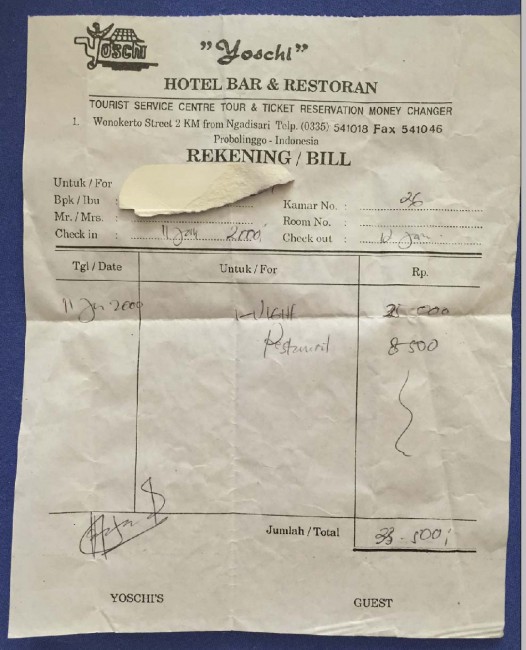 YOSCHI
"Yoschi"
HOTEL BAR & RESTORAN
TOURIST SERVICE CENTRE TOUR & TICKET RESERVATION MONEY CHANGER
1. Wonokerto Street 2 KM from Ngadisari Telp. (0335) 541018 Fax 541046
Probolinggo - Indonesia
REKENING / BILL
Untuk / For
Bpk / Ibu :
Mr. / Mrs. :
Check in : 11 Jan 2000
Kamar No. : 26
Room No. :
Check out : Jan
Tgl / Date Untuk / For Rp.
11 Jan 2000 1 NIGHT 25 000
Restaurant 8 500
Jumlah / Total 33.500,
YOSCHI'S GUEST